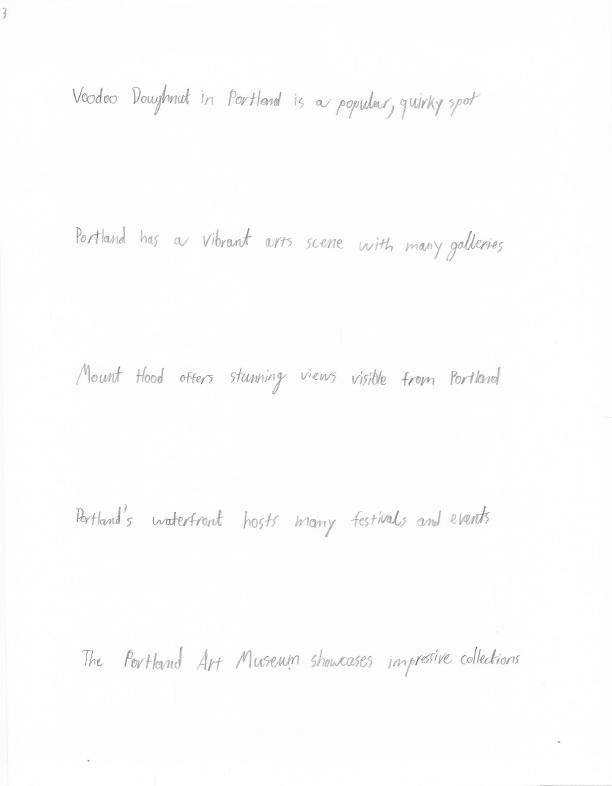 3
Voodoo Doughnut in Portland is a popular, quirky spot
Portland has a vibrant arts scene with many galleries
Mount Hood offers stunning views visible from Portland
Portland's waterfront hosts many festivals and events
The Portland Art Museum showcases impressive collections